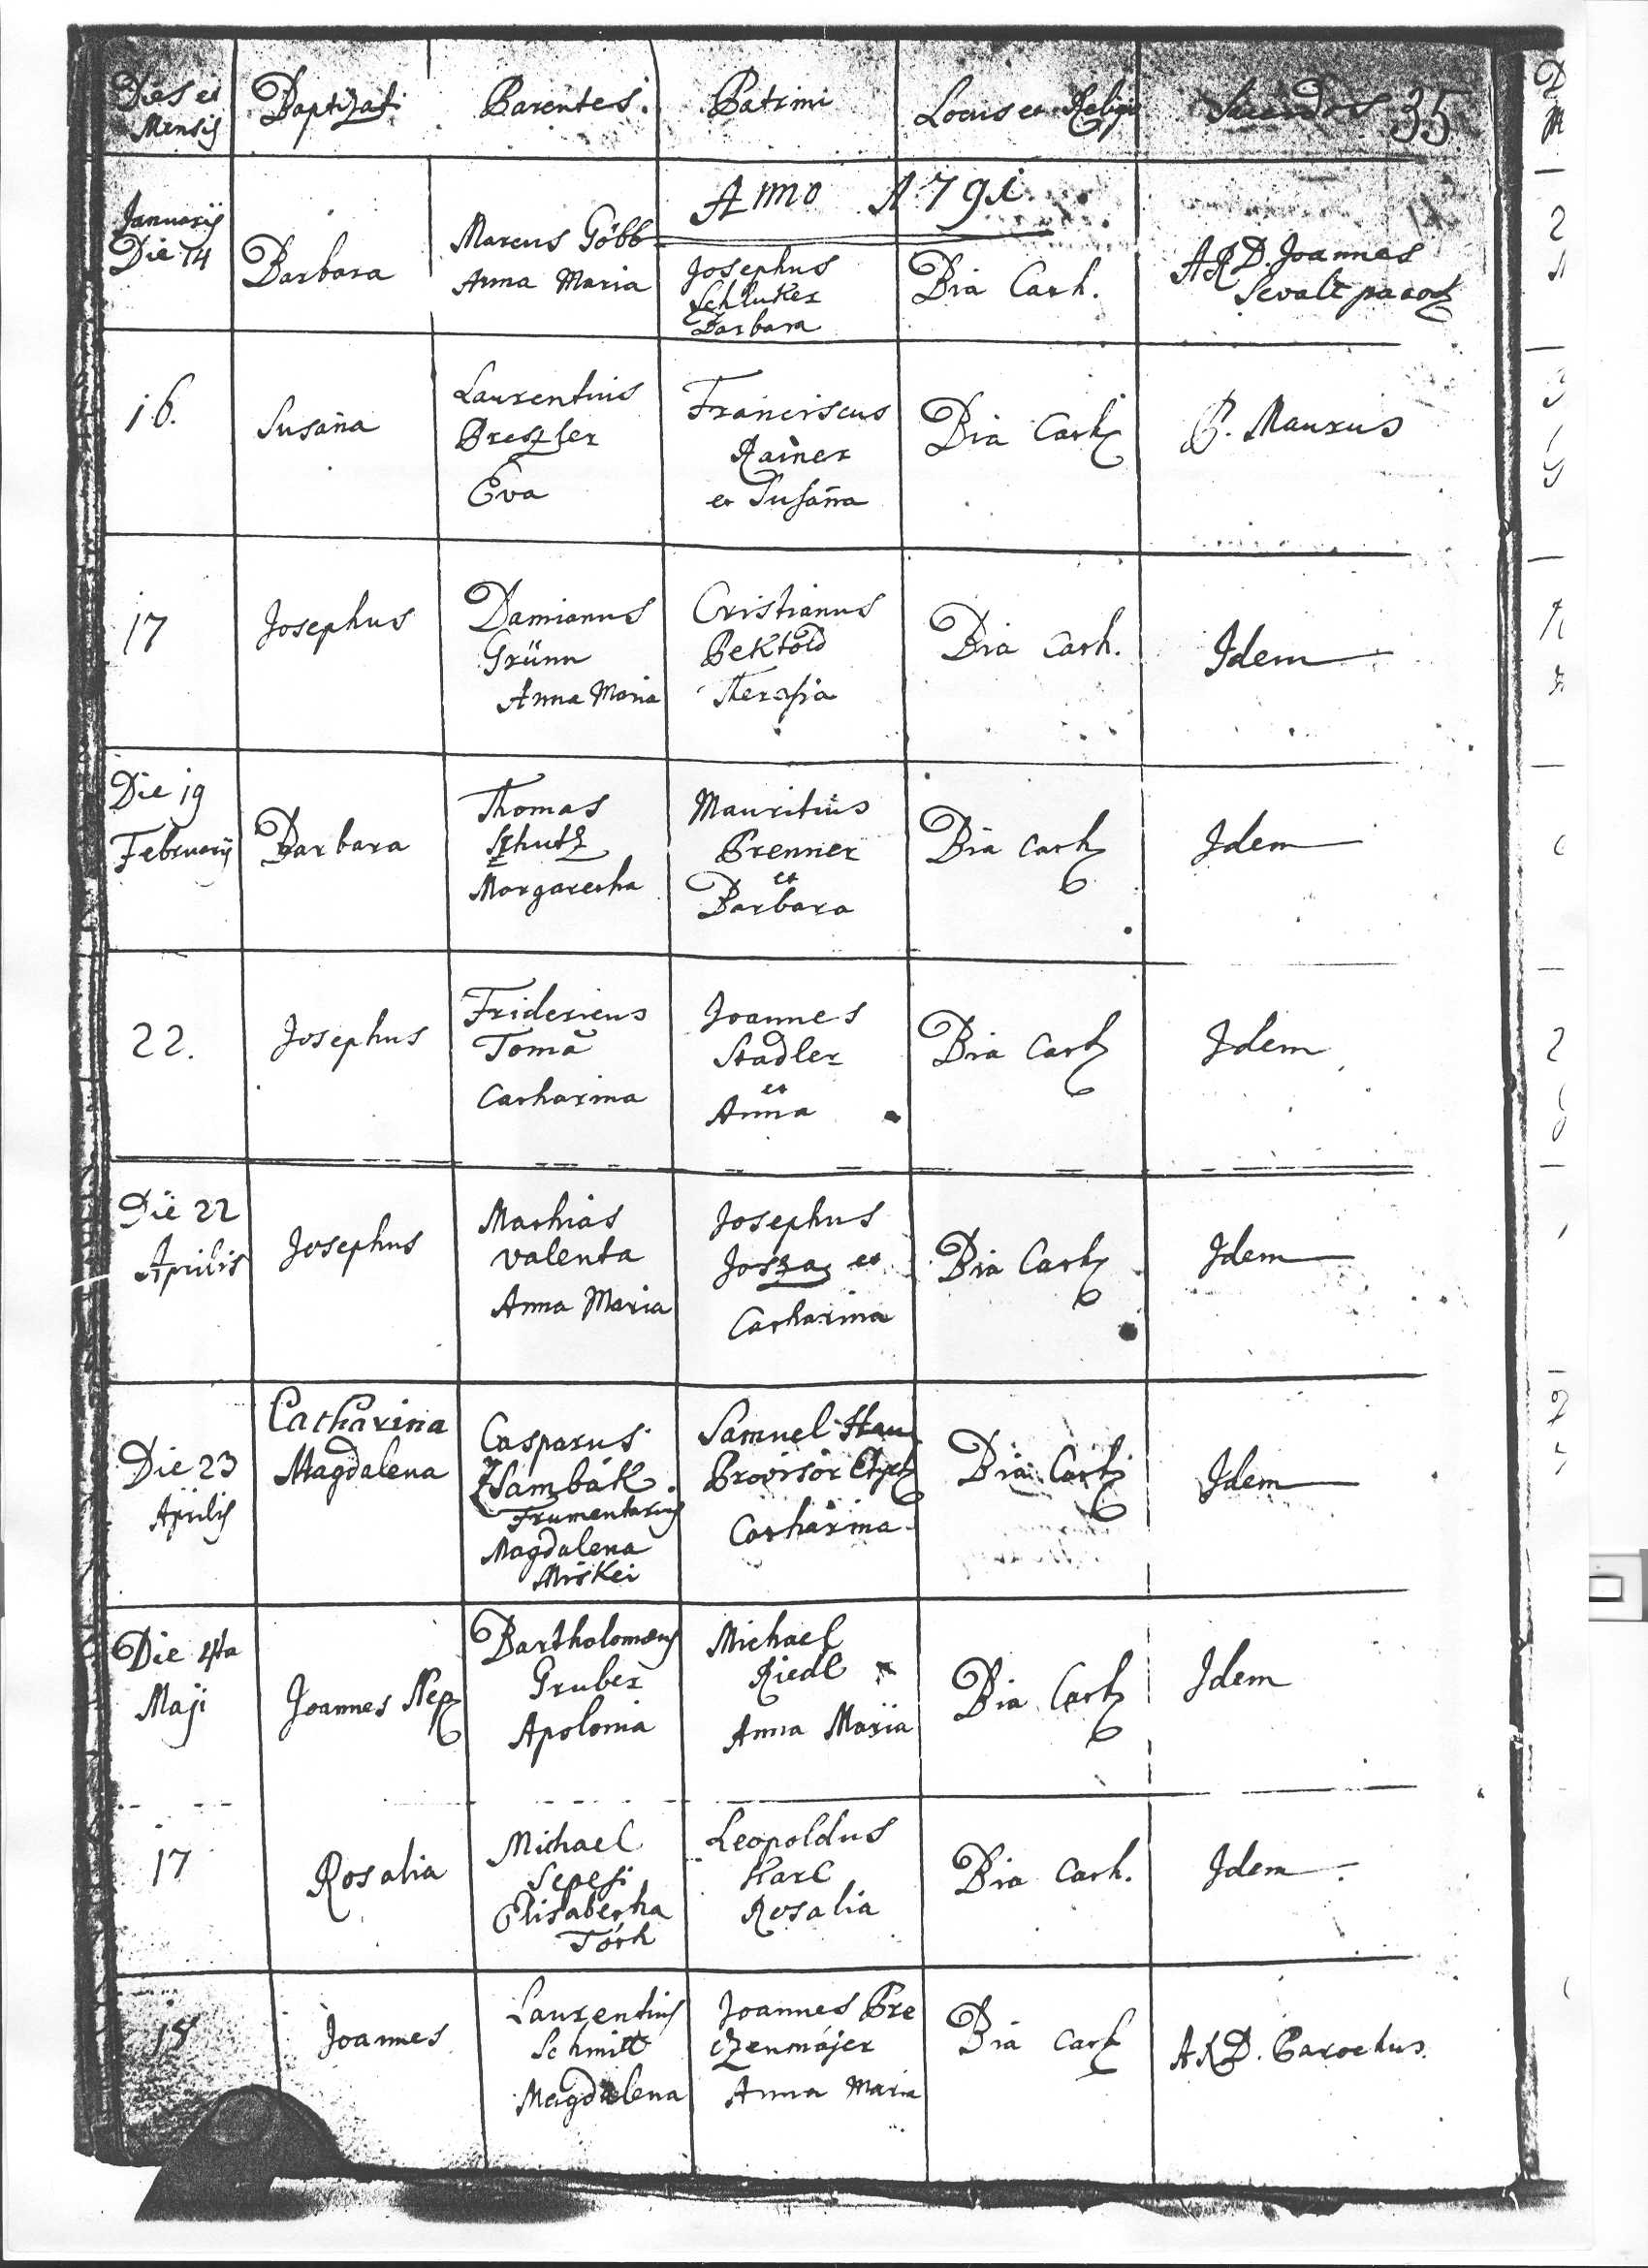 Dies et
Mensis
Baptizati
Parentes.
Patrini
Locus et Religio
Sacerdos 35
Anno 1791.
Januarij
Die 14
Barbara
Marcus Göbb
Anna Maria
Josephus
Schluker
Barbara
Bia Cath.
A R D. Joannes
paroch
16.
Susana
Laurentius
Preszler
Eva
Franciscus
Rainer
et Susana
Bia Cath
P. Maurus
17
Josephus
Damianus
Grünn
Anna Maria
Cristianus
Pektold
Theresia
Bia Cath.
Idem
Die 19
Februarij
Barbara
Thomas
Schutz
Margaretha
Mauritius
Prenner
et
Barbara
Bia Cath
Idem
22.
Josephus
Fridericus
Toma
Catharina
Joannes
Stadler
et
Anna
Bia Cath
Idem
Die 22
Aprilis
Josephus
Mathias
Valenta
Anna Maria
Josephus
Josza et
Catharina
Bia Cath
Idem
Die 23
Aprilis
Catharina
Magdalena
Casparus
Zsambák
Frumentarius
Magdalena
Miskei
Samuel
Provisor
Catharina
Bia Cath
Idem
Die 4ta
Maji
Joannes Nep
Bartholomæus
Gruber
Apolonia
Michael
Riedl
Anna Maria
Bia Cath
Idem
17
Rosalia
Michael
Sepesi
Elisabetha
Tóth
Leopoldus
Harl
Rosalia
Bia Cath.
Idem
18
Joannes
Laurentius
Schmitt
Magdalena
Joannes Pre
czenmájer
Anna Maria
Bia Cath
A R D. Parochus.